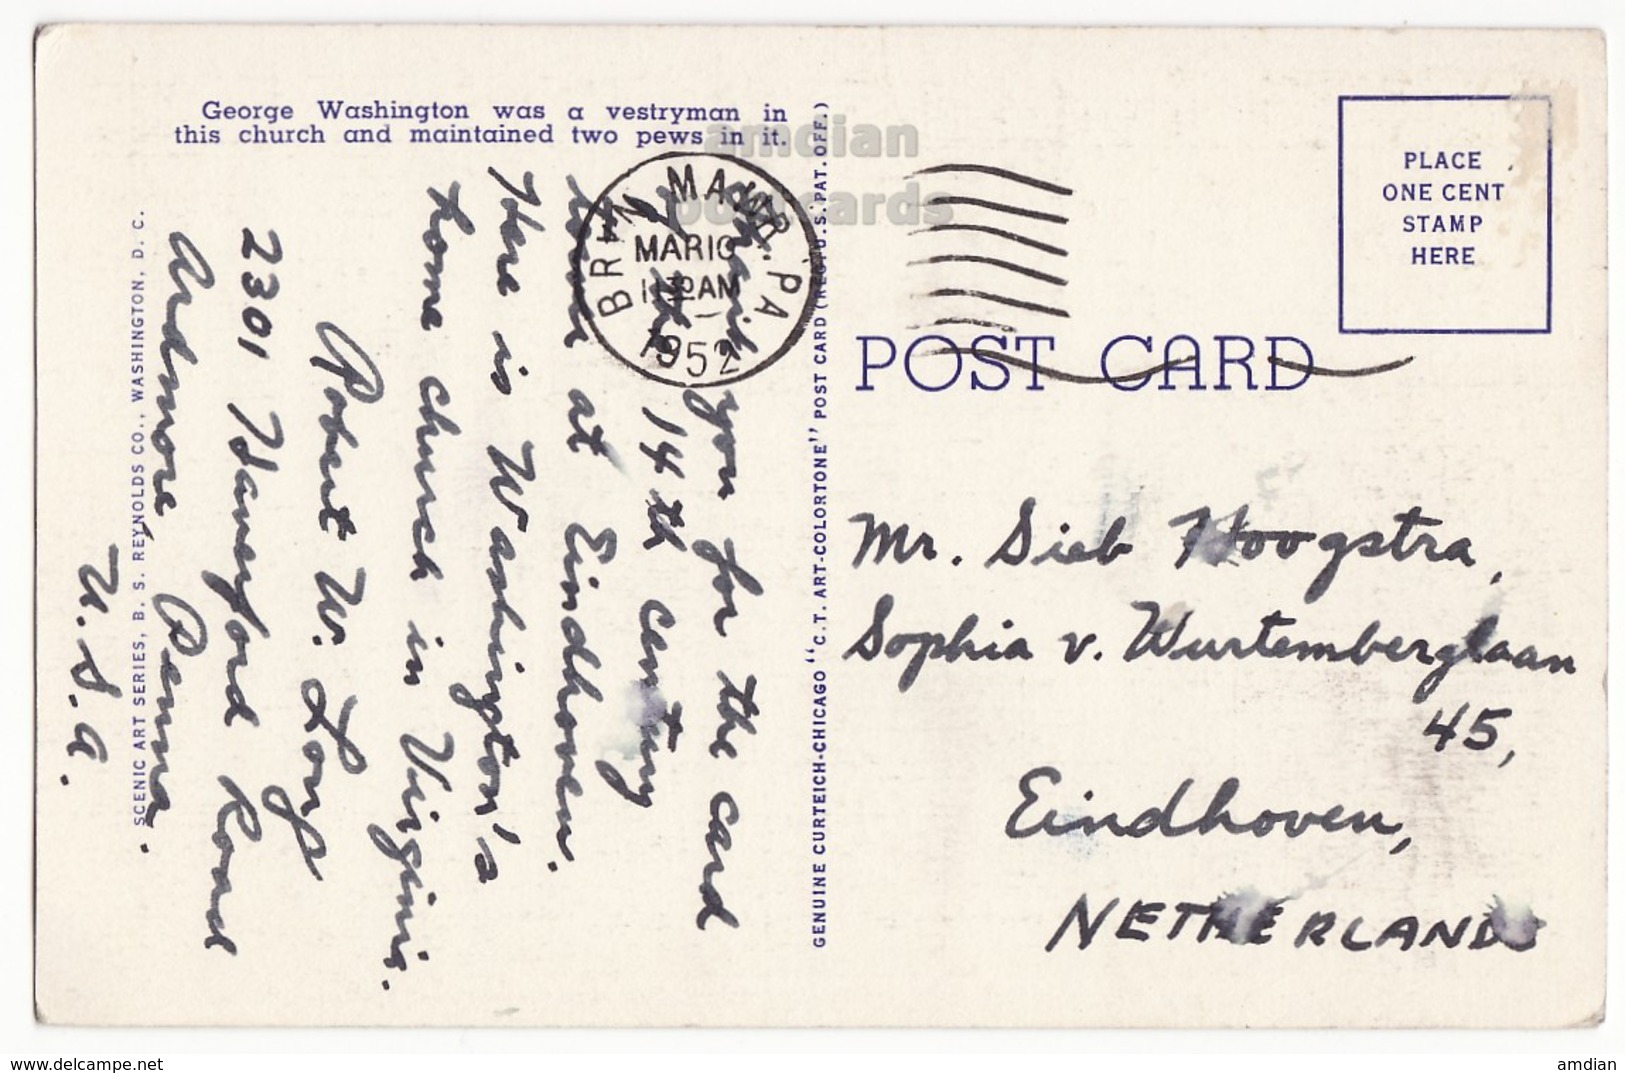 George Washington was a vestryman in
this church and maintained two pews in it.
Thank you for the card
of the 14th century
town at Eindhoven.
Here is Washington's
home church in Virginia.
Robert W. Long
2301 Haverford Road
Ardmore, Penna.
U.S.A.
SCENIC ART SERIES, B. S. REYNOLDS CO., WASHINGTON, D. C.
GENUINE CURTEICH-CHICAGO "C.T. ART-COLORTONE" POST CARD (REG. U.S. PAT. OFF.)
BRYN MAWR PA
MAR 10
11 30 AM
1952
PLACE
ONE CENT
STAMP
HERE
POST CARD
Mr. Sieb Hoogstra,
Sophia v. Wurtemberglaan
45,
Eindhoven,
NETHERLANDS
amdian
postcards
delcampe.net
amdian